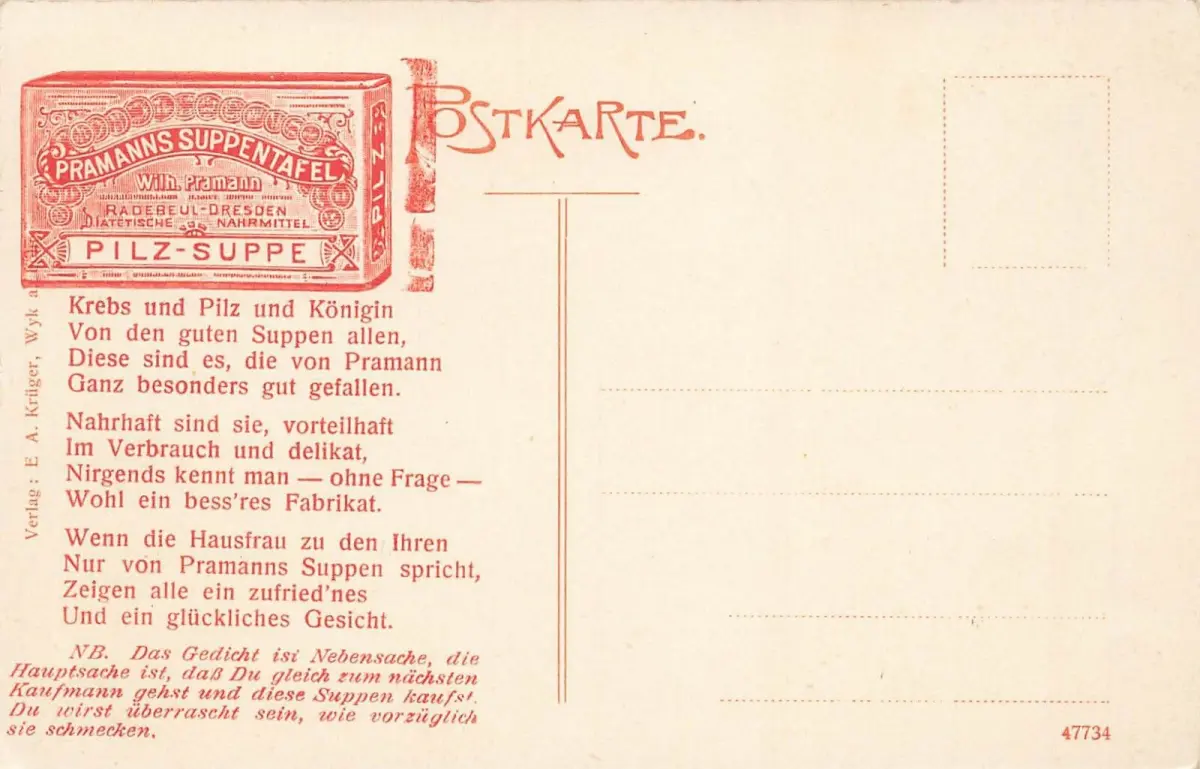 PRAMANNS SUPPENTAFEL
Wilh. Pramann
RADEBEUL-DRESDEN
DIÄTETISCHE NÄHRMITTEL
PILZ-SUPPE
PILZ
POSTKARTE.
Krebs und Pilz und Königin
Von den guten Suppen allen,
Diese sind es, die von Pramann
Ganz besonders gut gefallen.
Nahrhaft sind sie, vorteilhaft
Im Verbrauch und delikat,
Nirgends kennt man — ohne Frage —
Wohl ein bess'res Fabrikat.
Wenn die Hausfrau zu den Ihren
Nur von Pramanns Suppen spricht,
Zeigen alle ein zufried'nes
Und ein glückliches Gesicht.
NB. Das Gedicht ist Nebensache, die
Hauptsache ist, daß Du gleich zum nächsten
Kaufmann gehst und diese Suppen kaufst.
Du wirst überrascht sein, wie vorzüglich
sie schmecken.
Verlag: E A. Krüger, Wyk a
47734